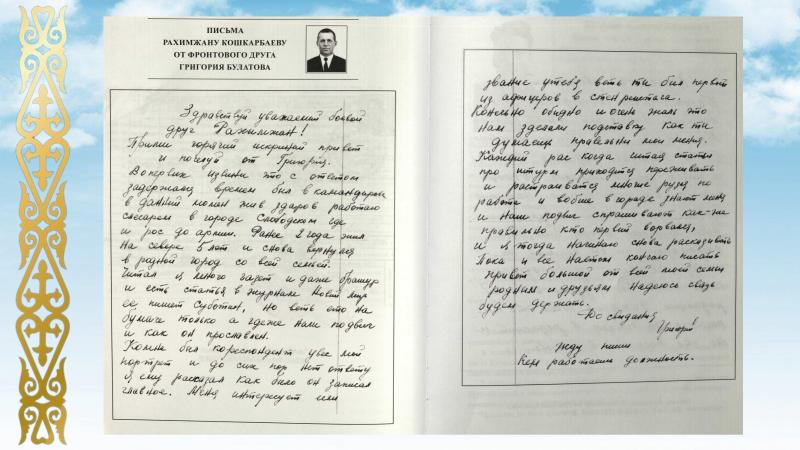 ПИСЬМА
РАХИМЖАНУ КОШКАРБАЕВУ
ОТ ФРОНТОВОГО ДРУГА
ГРИГОРИЯ БУЛАТОВА
Здравствуй уважаемый боевой
друг Рахимжан!
Прими горячий искрений привет
и поцелуй от Григория.
Во первых извини что с ответом
задержался временем был в командировке
в данний момен жив здоров работаю
слесарем в городе Слободском где
и рос до армии. Ранее 2 года жил
На севере 5 лет и снова вернулся
в родной город со всей семьей.
Читал я много газет и даже брашур
и есть статья в журнале Новий мир
ее пишет Суботин, но веть ето на
бумаге только а где же наш подвиг
и как он прославлен.
Комне был кореспондент увез мой
портрет и до сих пор нет ответу
я ему рассказал как было он записал
главное. Меня интересует или
звание у тебя веть ти был первий
из афицеров в стен рейхстага.
Конешно обидно и очень жаль что
нам зделали подставку как ти
думаеш правельно или меня.
Каждий рас когда читая статьи
про штурм приходится переживать
и растраиватся многие друзя по
работе и вобще в городе знают меня
и наш подвиг спрашивают как-же
правильно кто первий ворвался,
и я тогда начинаю снова рассказивать
Пока и все на етом кончаю писать
привет большой от всей моей семьи
родним и друзьям надеюсь связь
будем держать.
До свидания
Григорий
Жду пиши
Кем работаеш должность.